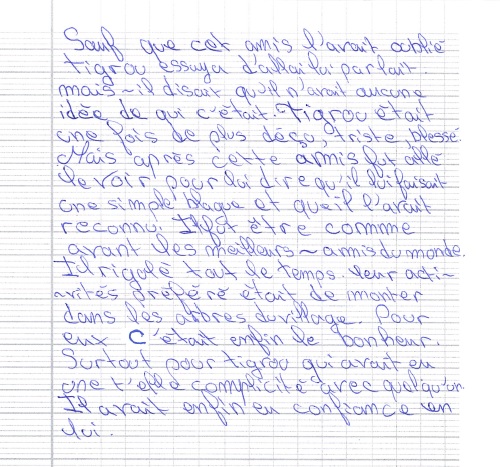 Sauf que cet amis l'avait oublié
Tigrou essaya d'allai lui parlait.
mais ~ il disait qu'il n'avait aucune
idée de qui c'était. Tigrou était
une fois de plus déçu, triste, blessé.
Mais après cette amis fut allé
le voir pour lui dire qu'il lui faisait
une simple blague et queil l'avait
reconnu. Il fut être commme
avant les meilleurs ~ amis du monde.
Il rigolé tait le temps. leur acti-
-vités préféré était de monter
dans les arbres du village. Pour
eux c'était enfin le bonheur.
Surtout pour tigrou qui avait eu
une t'elle complicité avec quelqu'un
Il avait enfin eu confiance en
lui.